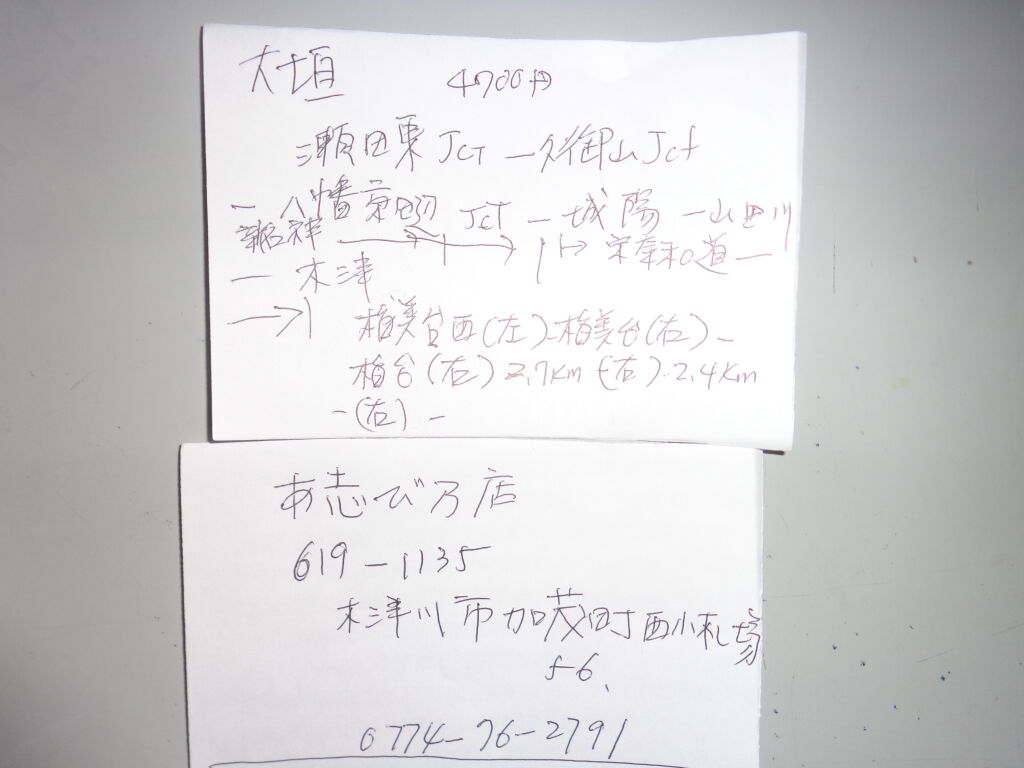 大垣 4700円
瀬田東JCT - 久御山Jct
- 八幡京田辺 JCT - 城陽 - 山田川
新名神 京奈和道 -
- 木津
梅美台西(左)-梅美台(右)-
梅台(右)2.7km(右).2.4km
-(右)-
あ志び乃店
619-1135
木津川市加茂町西小札場
5-6、
0774-76-2791